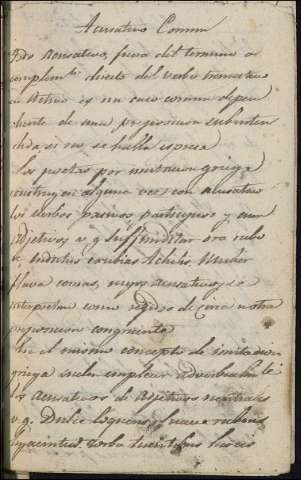 Acusativo Comun
Todo acusativo, fuera del termino o
complemto directo del verbo transitivo
en activa es un caso comun depen
diente de una preposicion subenten
dida, si no se halla espresa
Los poetas por imitacion griega
construyen alguna vez con acusativo
los verbos pasivos, participios y aun
adjetivos v g Suffunditur ora rubo
re. Indutus exuvias Achilis. Mulier
flava comas, cuyos acusativos se
interpretan como regidos de circa u otra
preposicion congruente
En el mismo concepto de imitacion
griega suelen emplear adverbialmte
los acusativos de adjetivos neutrales
v. g. Dulce loquens, suave rubens
hyacintus. Torva tuentibus hircis